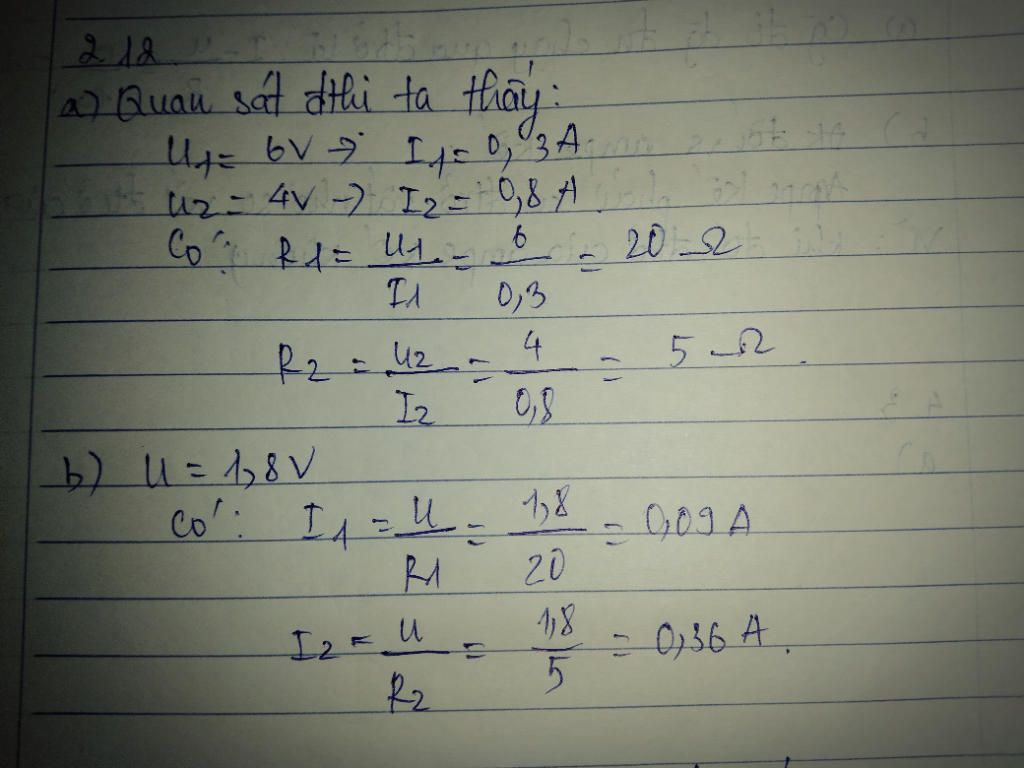 2.12.
a) Quan sát đthi ta thấy:
U1 = 6V → I1 = 0,3A
U2 = 4V → I2 = 0,8A.
Có: R1 = U1/I1 = 6/0,3 = 20 Ω
R2 = U2/I2 = 4/0,8 = 5 Ω.
b) U = 1,8V
Có: I1 = U/R1 = 1,8/20 = 0,09 A
I2 = U/R2 = 1,8/5 = 0,36 A.